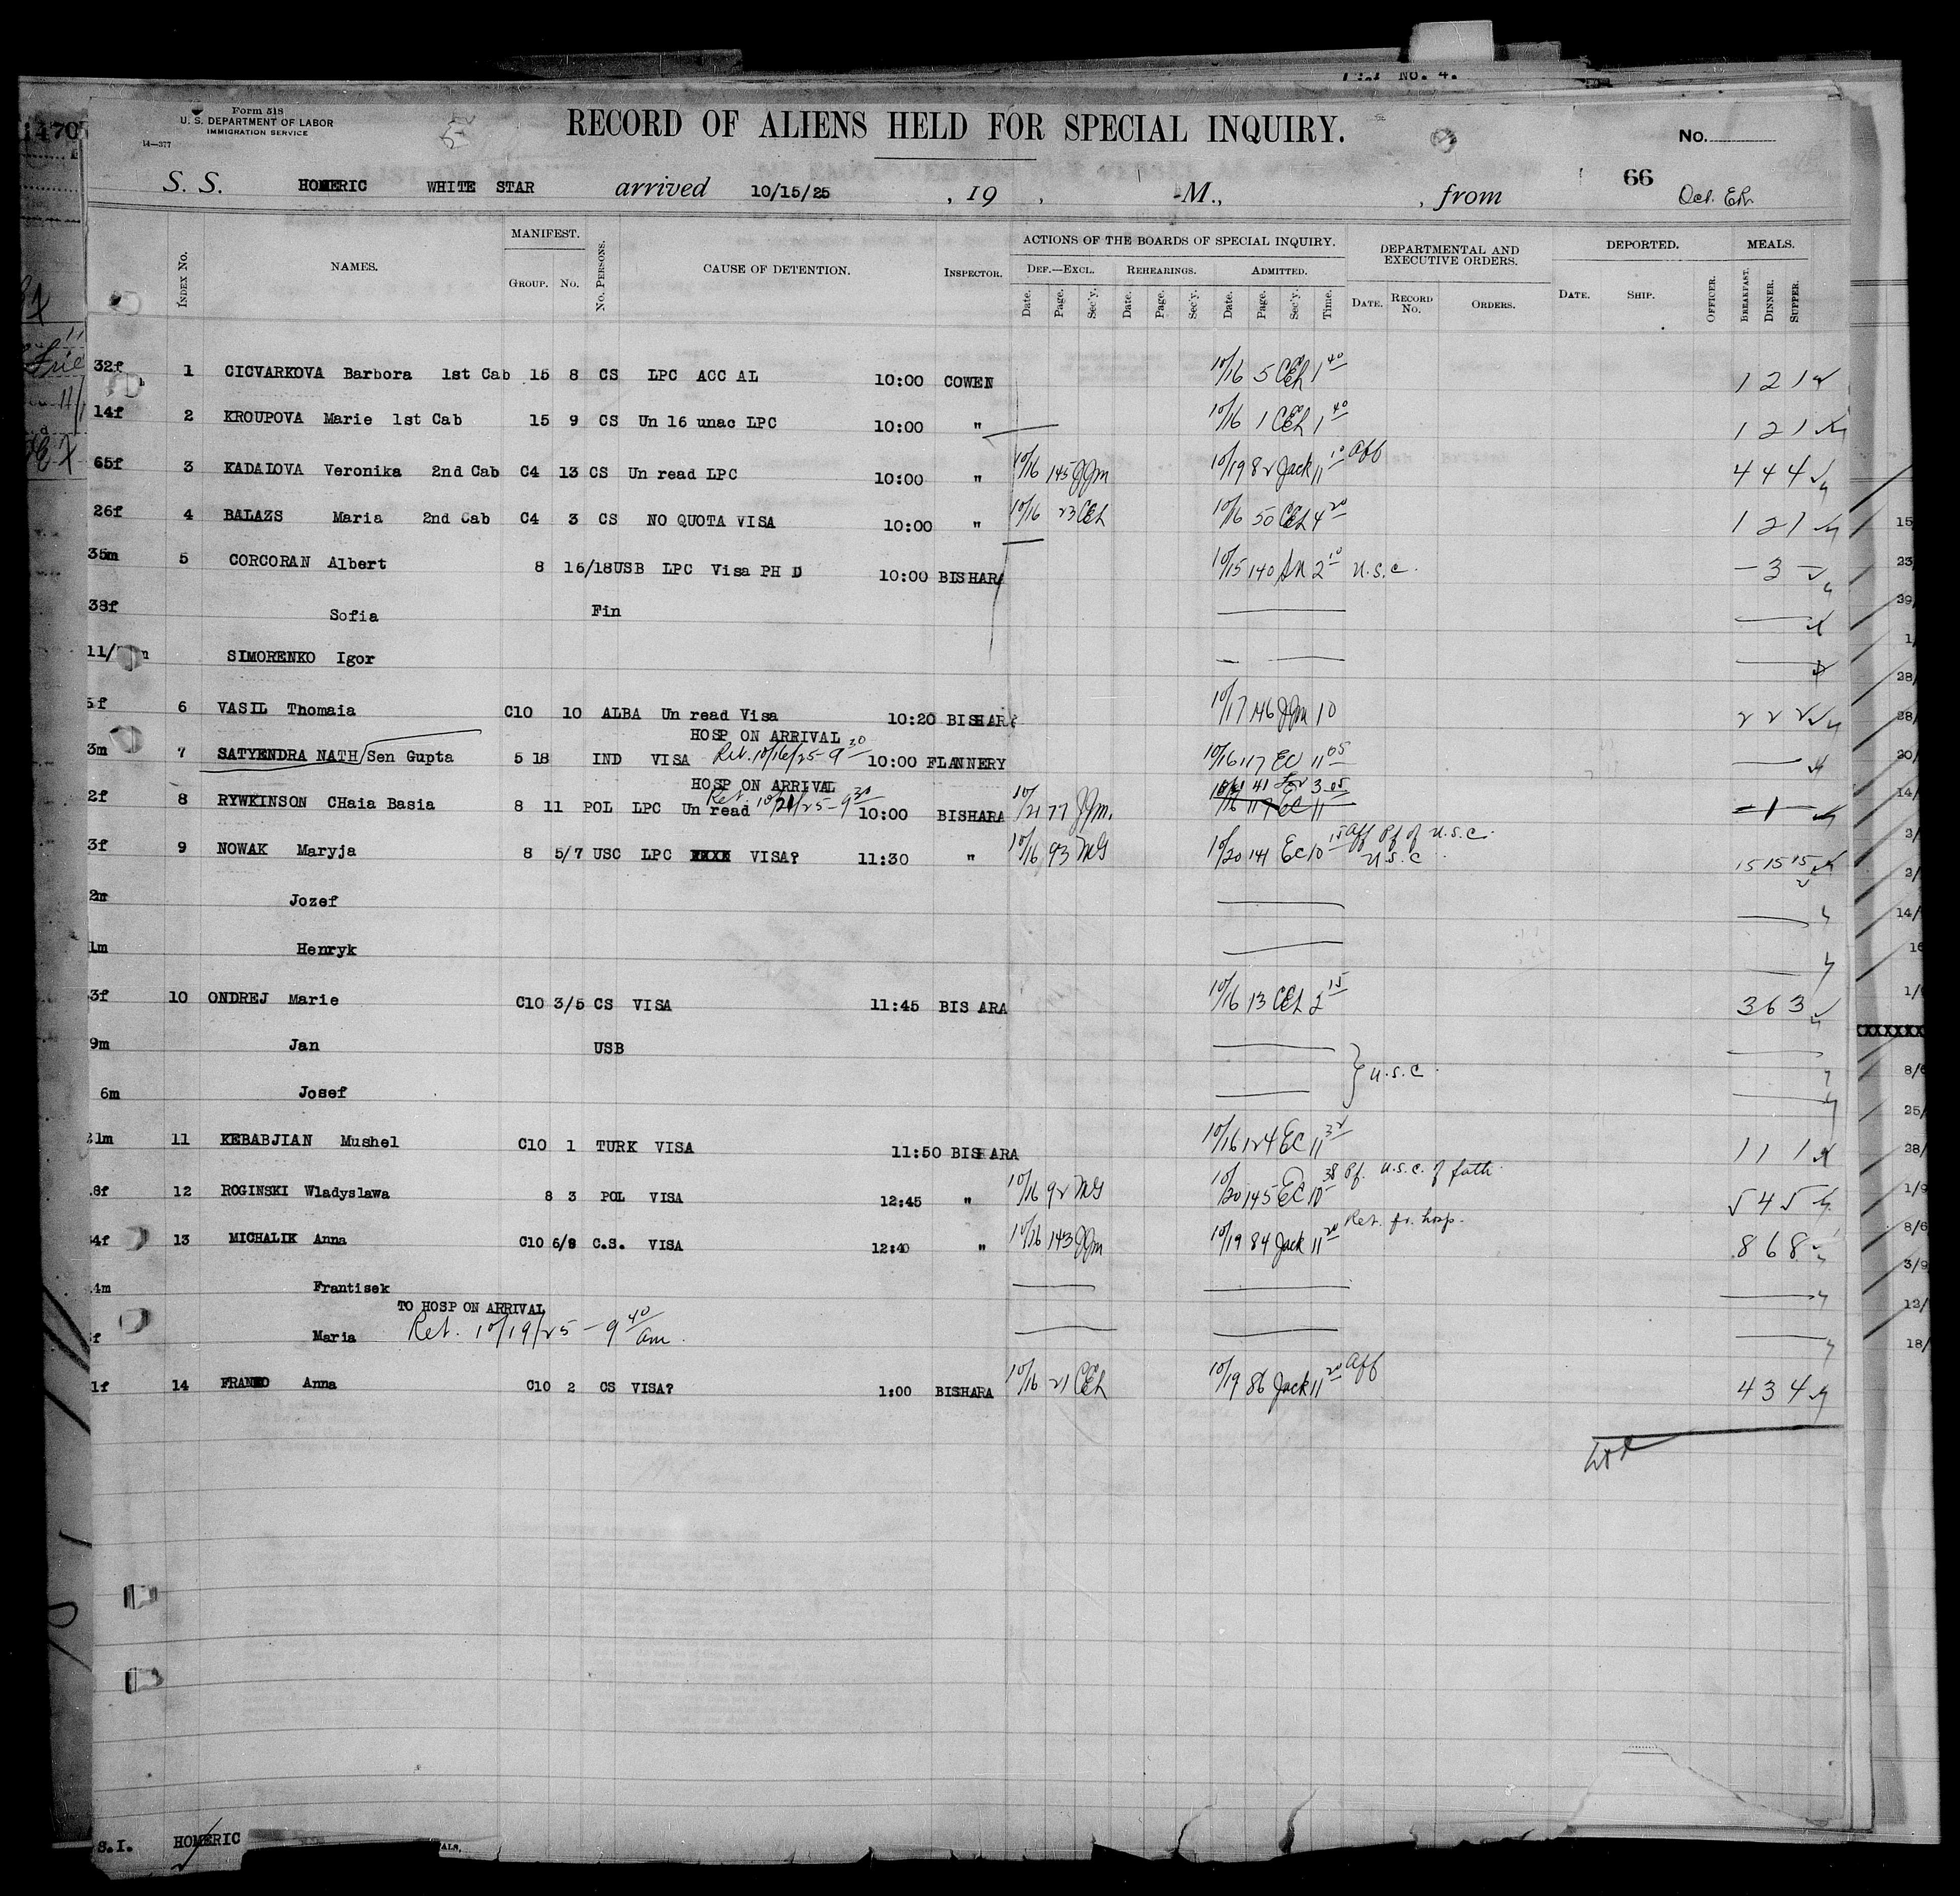 List No. 4.
1470
Form 518
U. S. DEPARTMENT OF LABOR
IMMIGRATION SERVICE
14—377
RECORD OF ALIENS HELD FOR SPECIAL INQUIRY.
No.
S. S. HOMERIC WHITE STAR arrived 10/15/25 , 19 , M., , from
66
INDEX No. NAMES. MANIFEST. GROUP. No. No. PERSONS. CAUSE OF DETENTION. INSPECTOR. ACTIONS OF THE BOARDS OF SPECIAL INQUIRY. DEPARTMENTAL AND EXECUTIVE ORDERS. DEPORTED. MEALS.
DEF.—EXCL. REHEARINGS. ADMITTED.
Date. Page. Sec'y. Date. Page. Sec'y. Date. Page. Sec'y. Time. DATE. RECORD No. ORDERS. DATE. SHIP. OFFICER. BREAKFAST. DINNER. SUPPER.
32f 1 CICVARKOVA Barbora 1st Cab 15 8 CS LPC ACC AL 10:00 COWEN 10/16 5 CEh 1 40 1 2 1
14f 2 KROUPOVA Marie 1st Cab 15 9 CS Un 16 unac LPC 10:00 " 10/16 1 CEh 1 40 1 2 1
65f 3 KADALOVA Veronika 2nd Cab C4 13 CS Un read LPC 10:00 " 10/16 145 JJm 10/19 82 Jack 11 10 Aff 4 4 4
26f 4 BALAZS Maria 2nd Cab C4 3 CS NO QUOTA VISA 10:00 " 10/16 23 CEh 10/16 50 CEh 4 20 1 2 1
35m 5 CORCORAN Albert 8 16/18 USB LPC Visa PH D 10:00 BISHARA 10/15 140 2 10 U.S.C. — 3 —
38f Sofia Fin
11/ SIMORENKO Igor
5f 6 VASIL Thomaia C10 10 ALBA Un read Visa 10:20 BISHARA 10/17 146 JJm 10 2 2 2
HOSP ON ARRIVAL
3m 7 SATYENDRA NATH/Sen Gupta 5 18 IND VISA Ret. 10/16/25 - 9 30 10:00 FLANNERY 10/16 117 EC 11 05
HOSP ON ARRIVAL
2f 8 RYWKINSON CHaia Basia 8 11 POL LPC Un read Ret. 10/21/25 - 9 30 10:00 BISHARA 10/21 77 JJm. 41 3 05 — 1 —
3f 9 NOWAK Maryja 8 5/7 USC LPC VISA? 11:30 " 10/16 93 MG 10/20 141 EC 10 15 Aff Pf of U.S.C. 15 15 15
U.S.C
2m Jozef
1m Henryk
3f 10 ONDREJ Marie C10 3/5 CS VISA 11:45 BIS ARA 10/16 13 CEh 2 15 3 6 3
9m Jan USB
U.S.C.
6m Josef
21m 11 KEBABJIAN Mushel C10 1 TURK VISA 11:50 BISHARA 10/16 124 EC 11 32 1 1 1
8f 12 ROGINSKI Wladyslawa 8 3 POL VISA 12:45 " 10/16 92 MG 10/20 145 EC 10 38 Pf. U.S.C. of fath. 5 4 5
4f 13 MICHALIK Anna C10 6/8 C.S. VISA 12:40 " 10/16 143 JJm 10/19 84 Jack 11 20 Ret. fr. hosp. 8 6 8
4m Frantisek
TO HOSP ON ARRIVAL
f Maria Ret. 10/19/25 - 9 40 am.
1f 14 FRANKO Anna C10 2 CS VISA? 1:00 BISHARA 10/16 21 CEh 10/19 86 Jack 11 20 Aff 4 3 4
S.I. HOMERIC